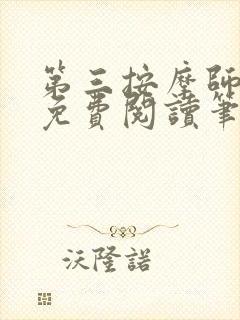 第三按摩師
免費閱讀筆
沃隆諾